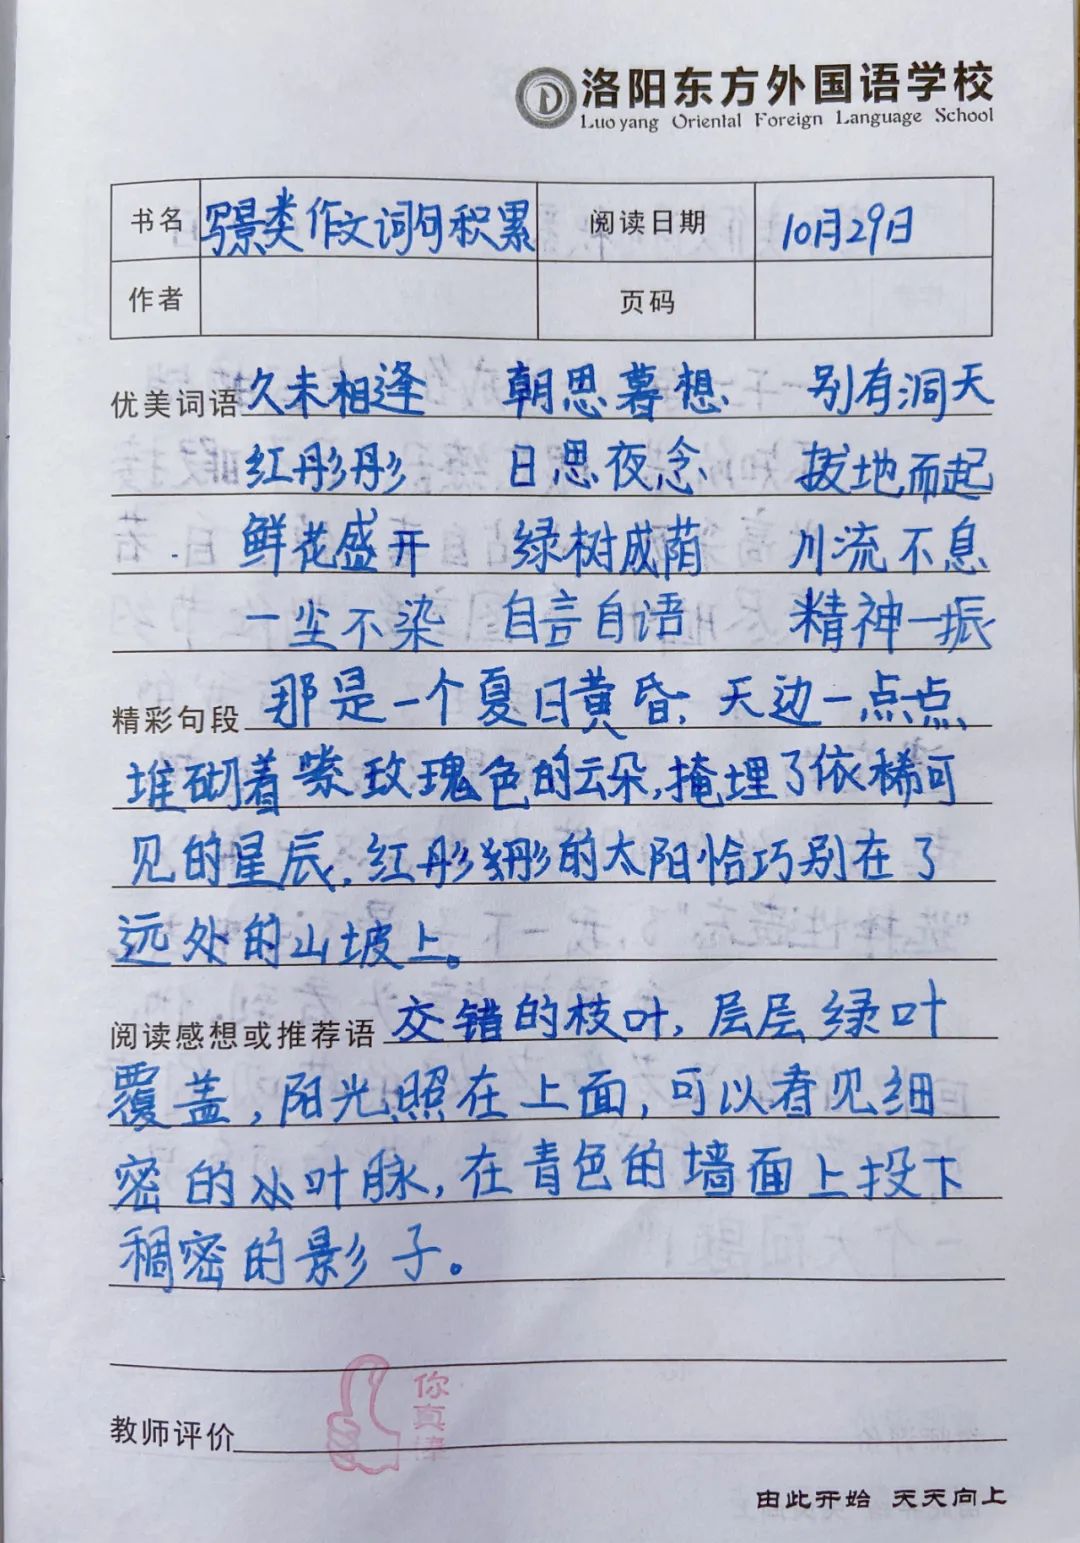 洛阳东方外国语学校
Luoyang Oriental Foreign Language School
书名 写景类作文词句积累 阅读日期 10月29日
作者 页码
优美词语 久未相逢 朝思暮想 别有洞天
红彤彤 日思夜念 拔地而起
鲜花盛开 绿树成荫 川流不息
一尘不染 自言自语 精神一振
精彩句段 那是一个夏日黄昏,天边一点点
堆砌着紫玫瑰色的云朵,掩埋了依稀可
见的星辰,红彤彤的太阳恰巧别在了
远处的山坡上。
阅读感想或推荐语 交错的枝叶,层层绿叶
覆盖,阳光照在上面,可以看见细
密的小叶脉,在青色的墙面上投下
稠密的影子。
你真棒
教师评价
由此开始 天天向上